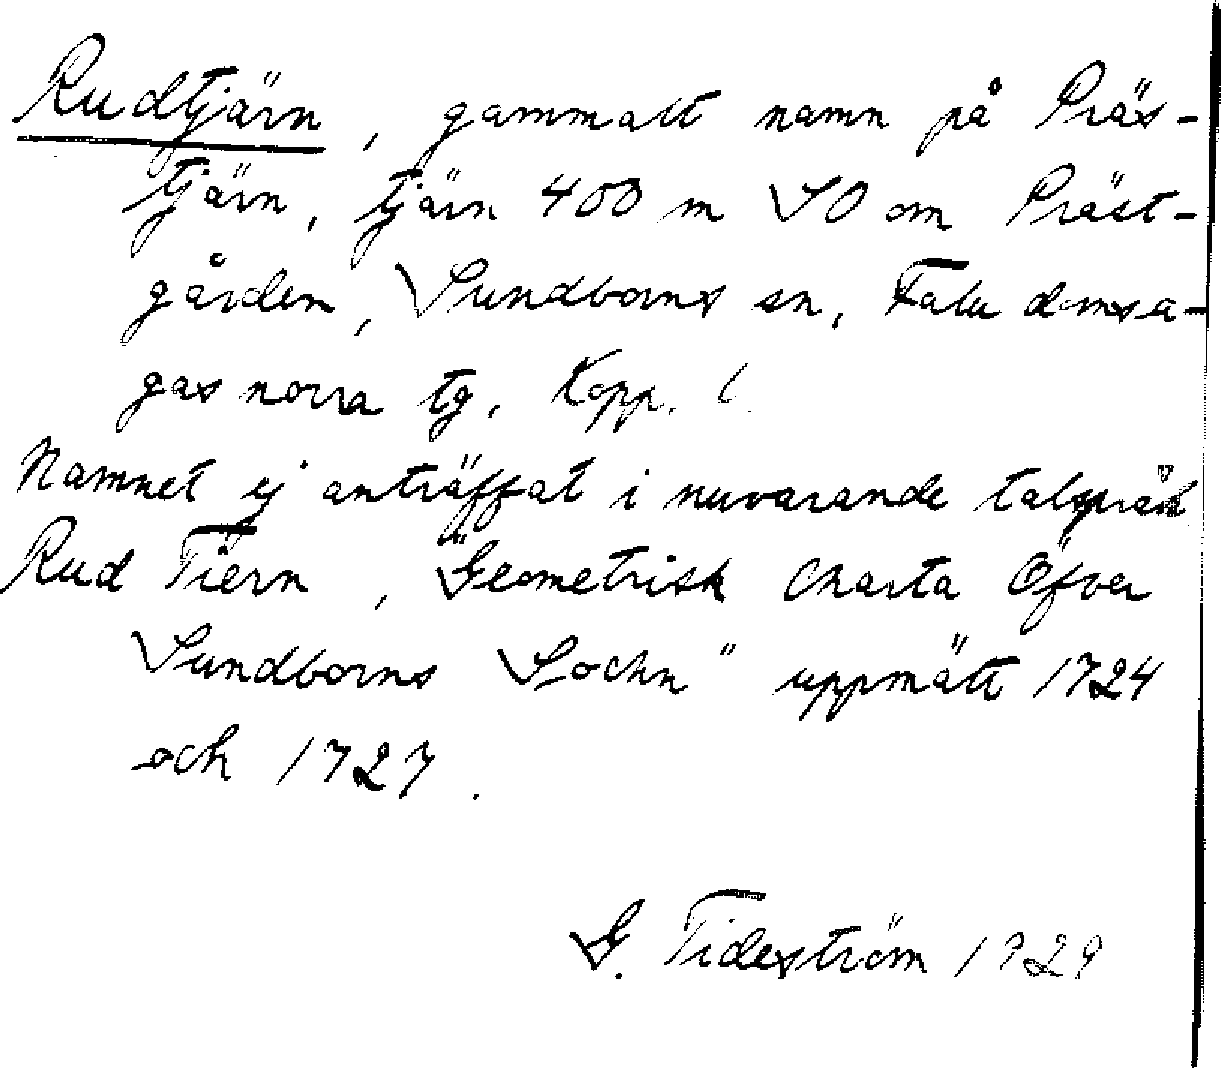 Rudtjärn, gammalt namn på Präs-
tjärn, tjärn 400 m SO om Präst-
gården, Sundborns sn, Falu domsa-
gas norra tg, Kopp. l.
Namnet ej anträffat i nuvarande talspråk
Rud Tiern, "Geometrisk Charta Öfver
Sundborns Sochn" uppmätt 1724
och 1727.
G. Tideström 1929